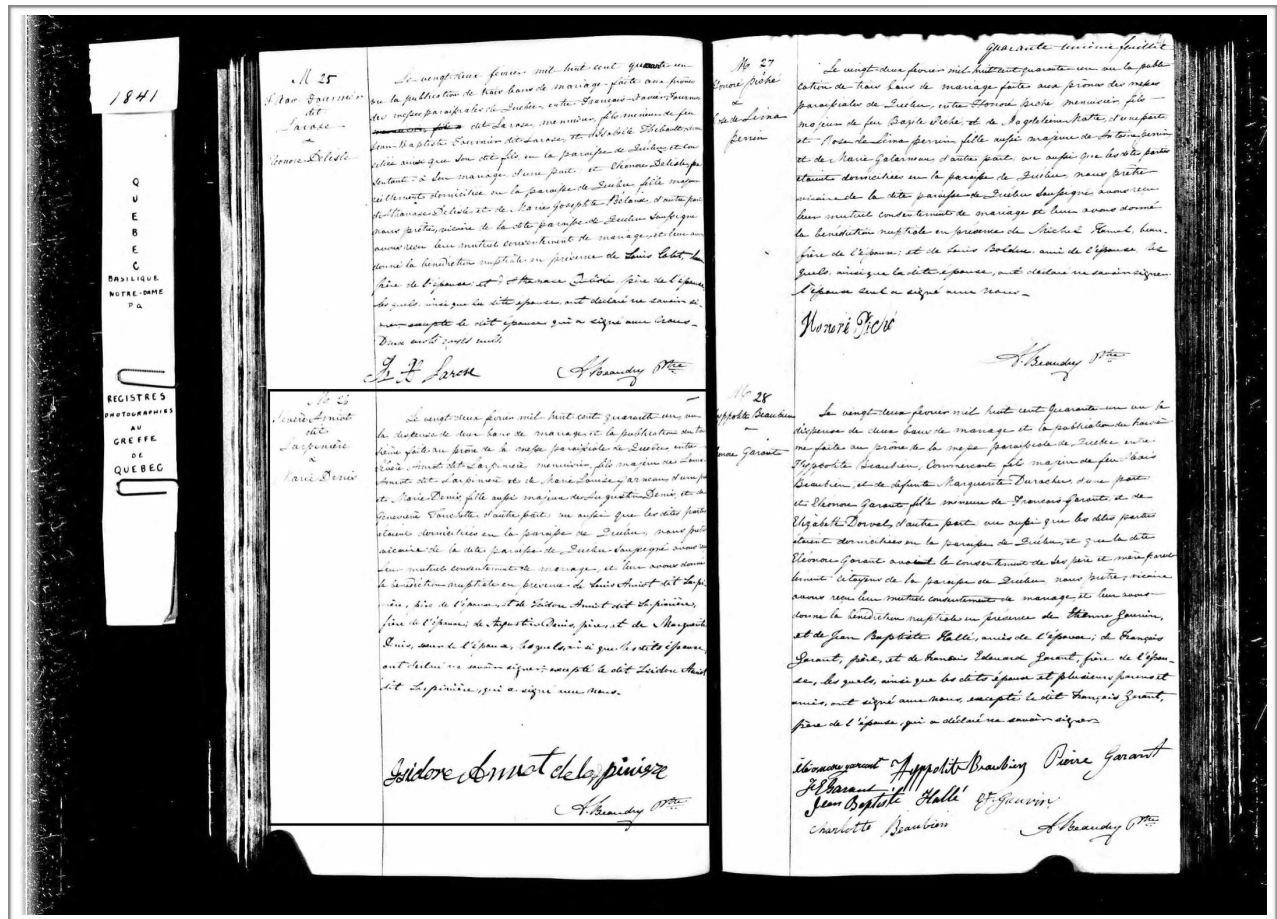 1841
QUEBEC
BASILIQUE
NOTRE-DAME
P Q
REGISTRES
PHOTOGRAPHIES
AU
GREFFE
DE
QUEBEC
M 25
F. Xav. Fournier
dit
Larose
&
Eléonore Delisle
Le vingt deux février mil huit cent quarante un
vu la publication de trois bans de mariage faite aux prônes
des messes paroissiales de Québec, entre François-Xavier Fournier
dit Larose, menuisier, fils mineur de feu
Jean-Baptiste Fournier dit Larose, et de Isabelle Thibault, domi-
ciliée ainsi que son dit fils, en la paroisse de Québec, et con
sentante à son mariage, d'une part; et Eléonore Delisle, pa
reillement domiciliée en la paroisse de Québec, fille majeure
d'Athanase Delisle et de Marie Josephte Béland, d'autre part
nous prêtre, vicaire de la dite paroisse de Québec soussigné
avons reçu leur mutuel consentement de mariage, et leur avons
donné la bénédiction nuptiale en présence de Louis
père de l'épouse, et d'Athanase Delisle, père de l'épouse
les quels, ainsi que la dite épouse, ont déclaré ne savoir si-
gner excepté le dit époux qui a signé avec nous.
Deux mots rayés nuls.
F. X. Larose
A. Beaudry Ptre
M 26
Amiot
dit
Larpinière
&
Marie Denis
Le vingt deux février mil huit cent quarante un, vu
la dispense de deux bans de mariage, et la publication du troi
sième faite au prône de la messe paroissiale de Québec, entre
Amiot dit Larpinière menuisier, fils majeur de Louis
Amiot dit Larpinière et de Marie Louise Garneau d'une part
et Marie Denis, fille aussi majeure de Augustin Denis, et de
Geneviève d'autre part; vu aussi que les dites parties
étaient domiciliées en la paroisse de Québec, nous prêtre
vicaire de la dite paroisse de Québec soussigné avons reçu
leur mutuel consentement de mariage, et leur avons donné
la bénédiction nuptiale en présence de Louis Amiot dit Larpi
nière, père de l'époux, et de Isidore Amiot dit Larpinière,
frère de l'époux; de Augustin Denis, père, et de Marguerite
Denis, sœur de l'épouse, les quels, ainsi que les dits époux,
ont déclaré ne savoir signer; excepté le dit Isidore Amiot
dit Larpinière, qui a signé avec nous.
Isidore Amiot de la pinierre
A. Beaudry Ptre
Quarante unième feuillet
M 27
Honoré Piché
&
Rose de Lima
Perrin
Le vingt deux février mil huit cent quarante un vu la publi
cation de trois bans de mariage faite aux prônes des messes
paroissiales de Québec, entre Honoré Piché menuisier, fils
majeur de feu Bazile Piché, et de Magdeleine Natte, d'une part
et Rose de Lima Perrin, fille aussi majeure de Antoine Perrin
et de Marie Galarneau d'autre part vu aussi que les dites parties
étaient domiciliées en la paroisse de Québec, nous prêtre
vicaire de la dite paroisse de Québec soussigné avons reçu
leur mutuel consentement de mariage et leur avons donné
la bénédiction nuptiale en présence de Michel Hamel, beau
frère de l'épouse; et de Louis Bolduc ami de l'épouse les
quels, ainsi que la dite épouse, ont déclaré ne savoir signer
l'époux seul a signé avec nous.
Honoré Piché
A. Beaudry Ptre
M 28
Hyppolite Beaubien
&
Eléonore Garant
Le vingt deux février mil huit cent quarante un vu la
dispense de deux bans de mariage et la publication du troisiè
me faite au prône de la messe paroissiale de Québec entre
Hyppolite Beaubien, Commerçant fils majeur de feu Louis
Beaubien, et de défunte Marguerite Durocher, d'une part
et Eléonore Garant, fille mineure de François Garant et de
Elizabeth Dorval, d'autre part vu aussi que les dites parties
étaient domiciliées en la paroisse de Québec, et que la dite
Eléonore Garant avait le consentement de ses père et mère pareil
lement citoyens de la paroisse de Québec nous prêtre, vicaire
avons reçu leur mutuel consentement de mariage et leur avons
donné la bénédiction nuptiale en présence de Etienne Gauvin,
et de Jean Baptiste Hallé, amis de l'époux; de François
Garant, père, et de François Edouard Garant, frère de l'épou-
se, les quels, ainsi que les dits époux et plusieurs parens et
amis, ont signé avec nous, excepté le dit François Garant,
père de l'épouse, qui a déclaré ne savoir signer.
éléonore garant Hyppolite Beaubien Pierre Garant
F E Garant
Jean Baptiste Hallé Et. Gauvin
Charlotte Beaubien A. Beaudry Ptre